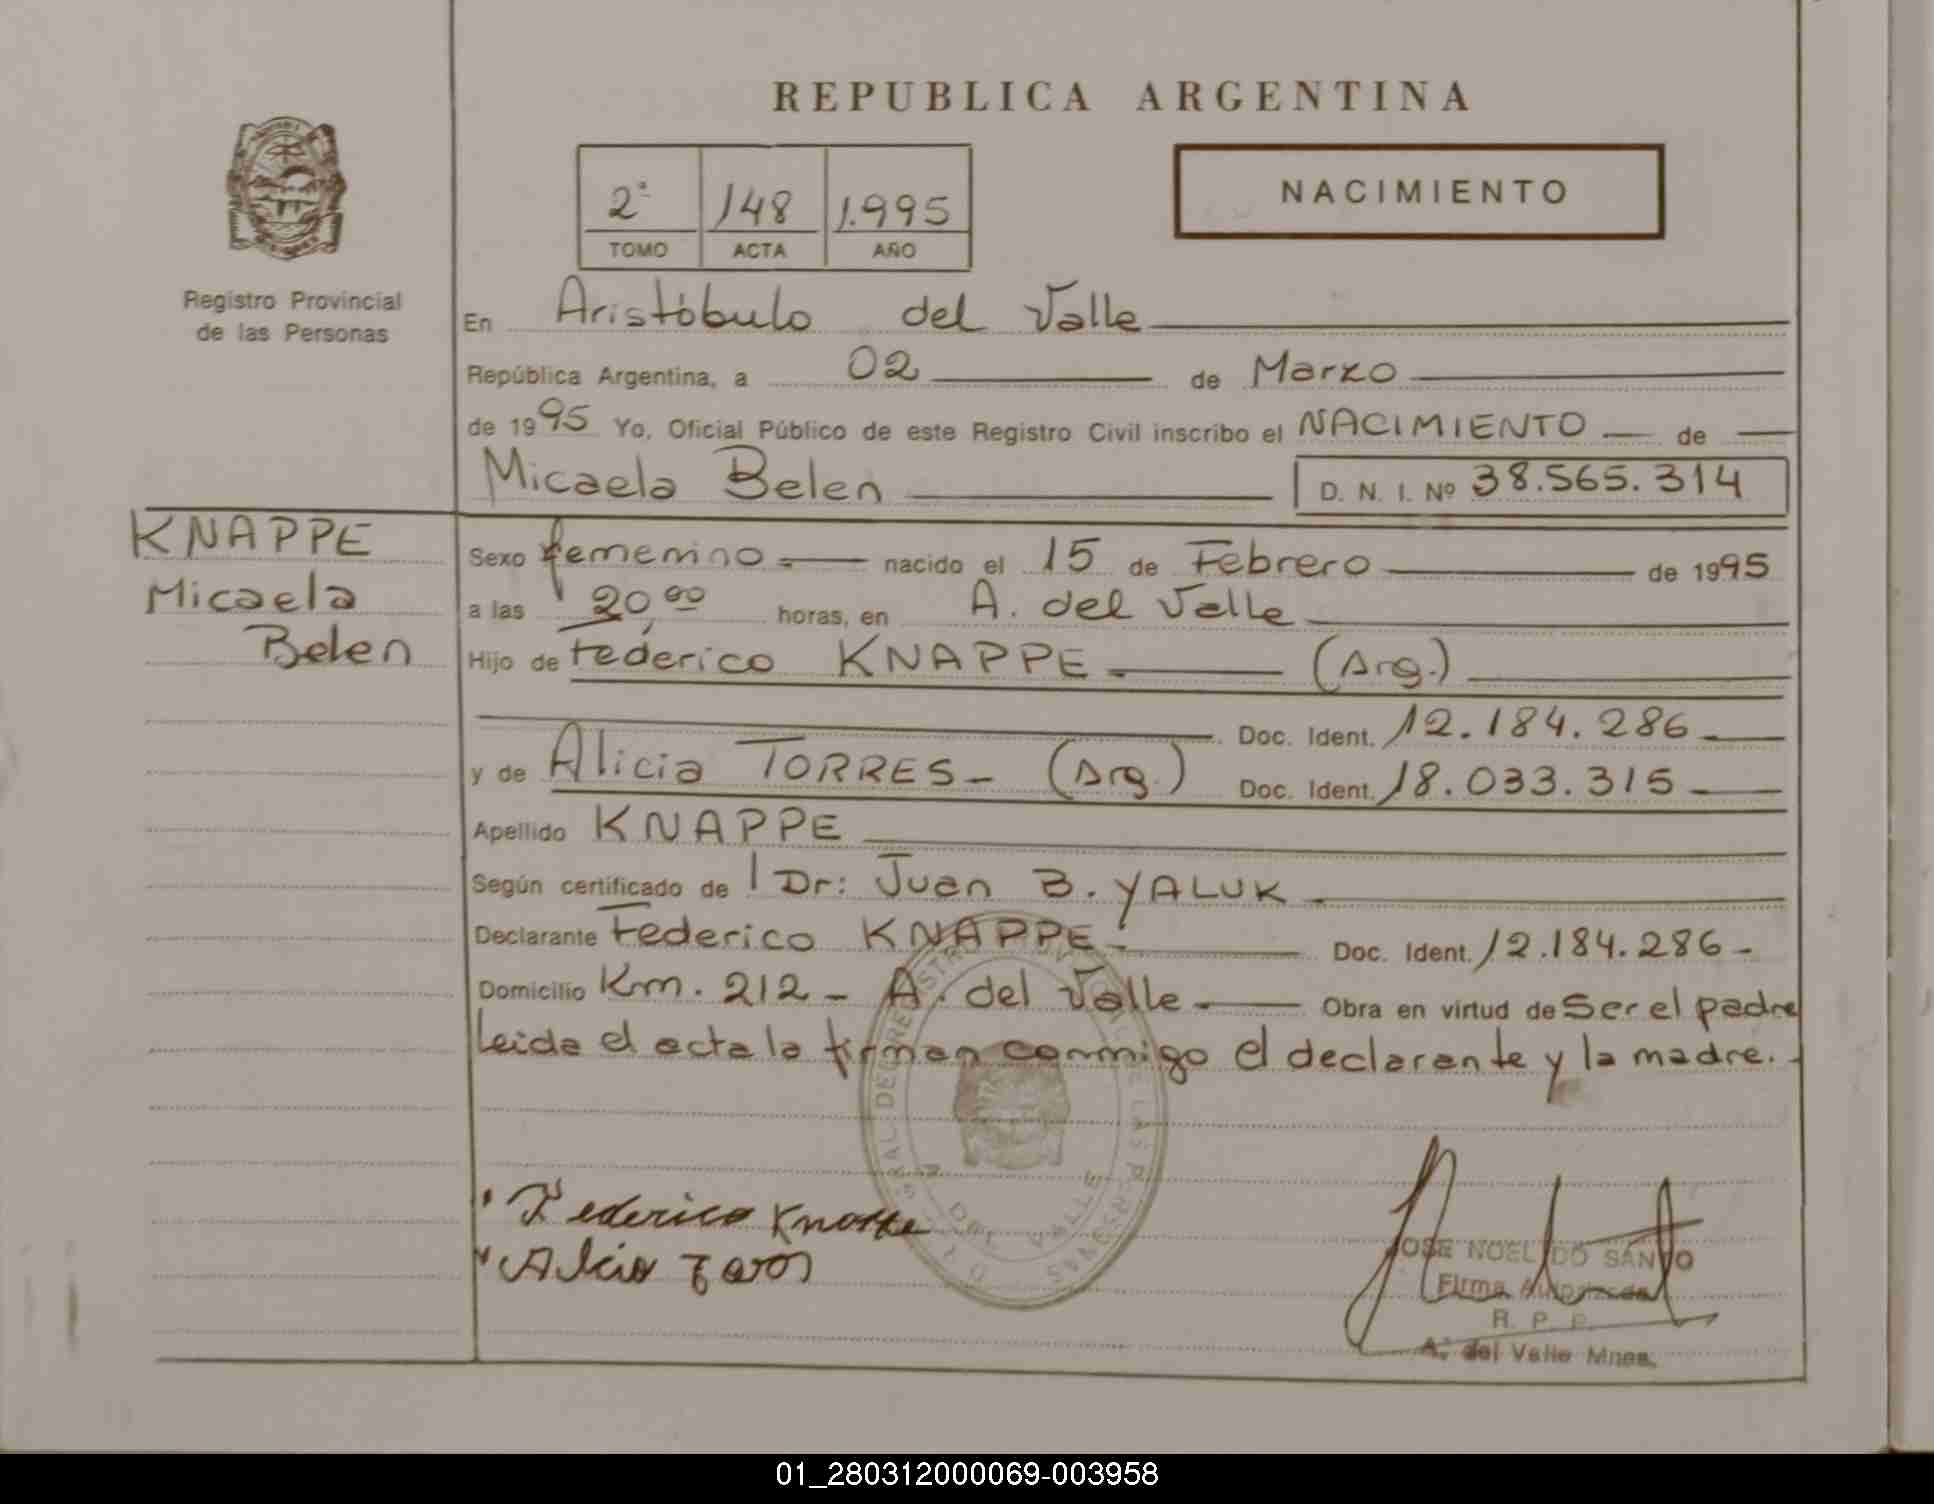 REPUBLICA ARGENTINA
2ª 148 1.995
TOMO ACTA AÑO
NACIMIENTO
Registro Provincial
de las Personas
En Aristóbulo del Valle
República Argentina, a 02 de Marzo
de 1995 Yo, Oficial Público de este Registro Civil inscribo el NACIMIENTO de
Micaela Belen D. N. I. Nº 38.565.314
KNAPPE
Micaela
Belen
Sexo femenino nacido el 15 de Febrero de 1995
a las 20,00 horas, en A. del Valle
Hijo de Federico KNAPPE (Arg.)
Doc. Ident. 12.184.286
y de Alicia TORRES (Arg.) Doc. Ident. 18.033.315
Apellido KNAPPE
Según certificado de Dr: Juan B. YALUK
Declarante Federico KNAPPE Doc. Ident. 12.184.286
Domicilio Km. 212 - A. del Valle Obra en virtud de Ser el padre
Leida el acta la firman conmigo el declarante y la madre.
DEL VALLE
Federico
JOSE NOEL DO SANTO
Firma Autorizada
R. P. P.
A. del Valle Mnes.
01_280312000069-003958